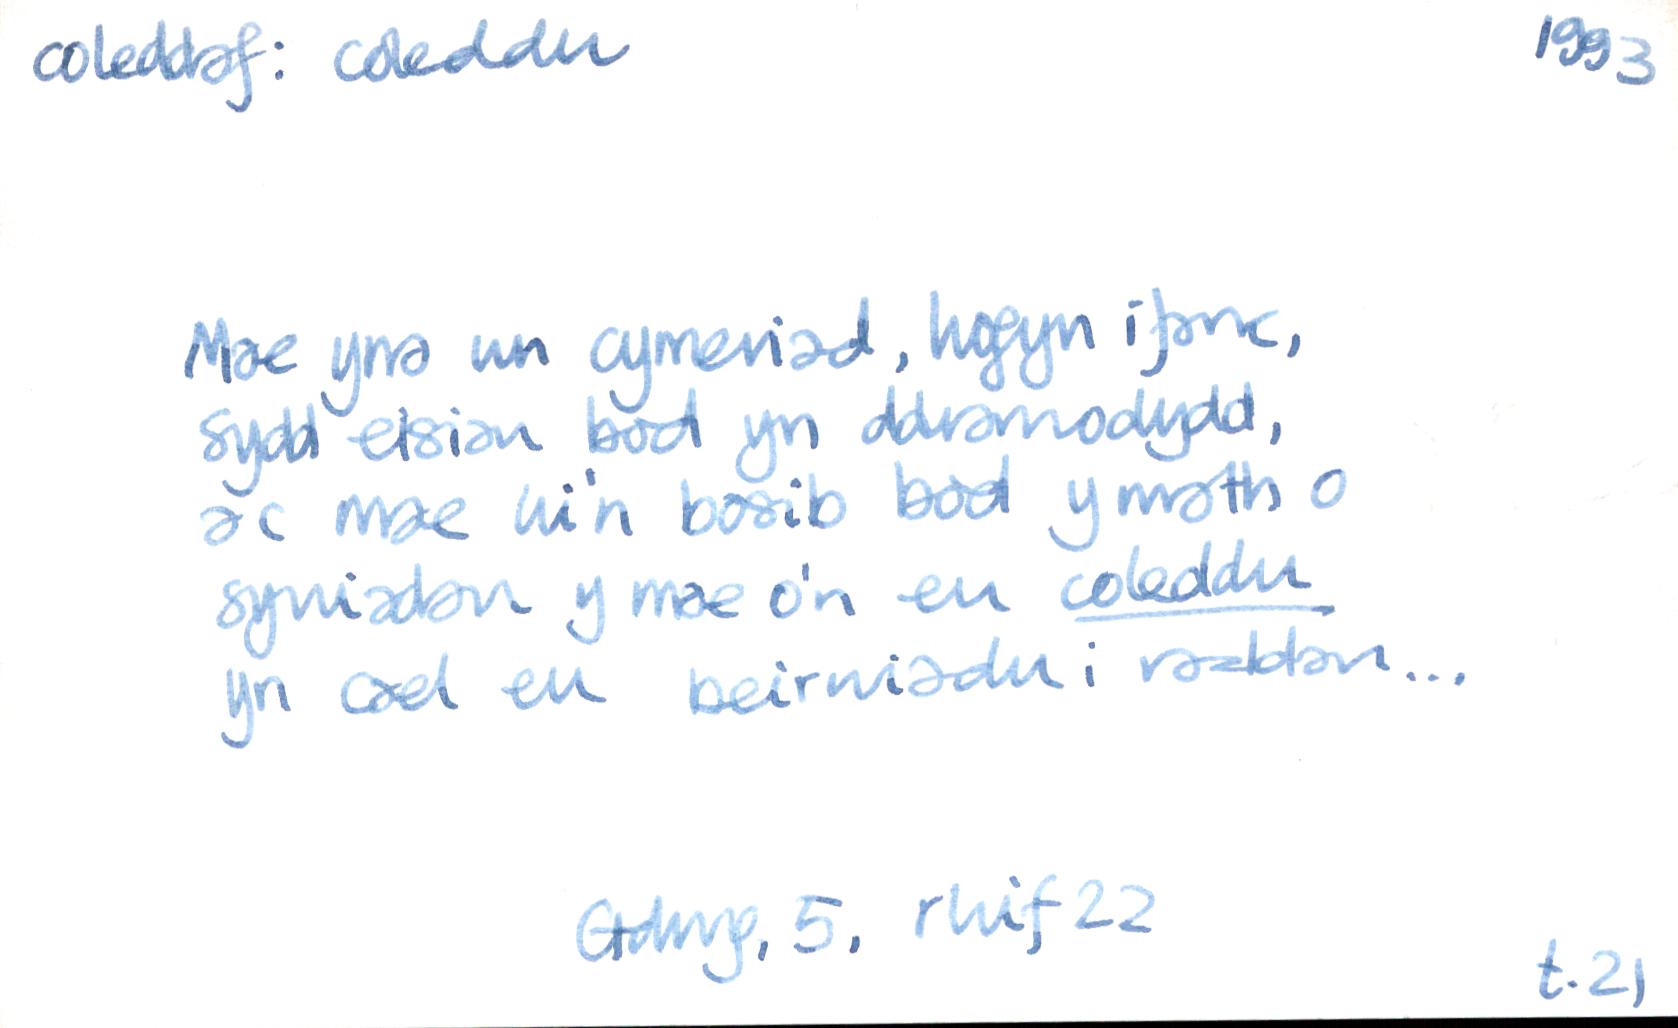 coleddaf: coleddu 1993
Mae yna un cymeriad, hogyn ifanc,
sydd eisiau bod yn ddramodydd,
ac mae hi'n bosib bod y math o
syniadau y mae o'n eu coleddu
yn cael eu beirniadu i raddau...
Golwg, 5, rhif 22
t. 21